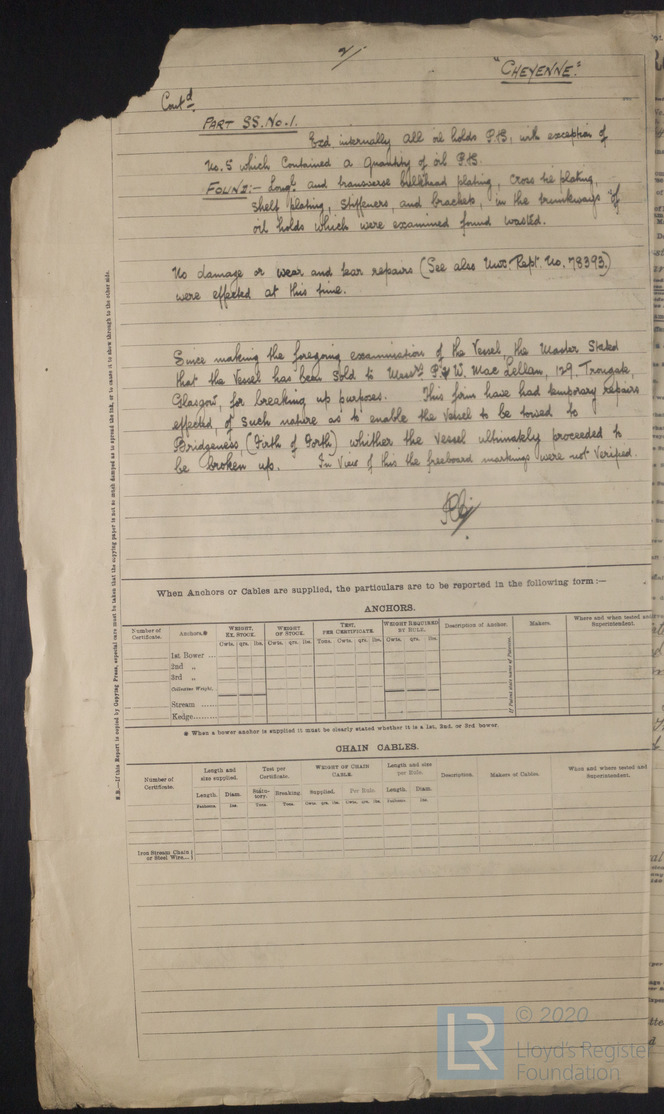 2/
"CHEYENNE."
Contd.
PART SS. No. 1.
Exd internally all oil holds P&S, with exception of
No. 5 which contained a quantity of oil P&S.
FOUND:- Longl and transverse bulkhead plating, cross tie plating,
shelf plating, stiffeners, and brackets, in the trunkways of
oil holds which were examined found wasted.
No damage or wear and tear repairs (See also Rept. No. 78393.)
were effected at this time.
Since making the foregoing examination of the Vessel, the Master stated
that the Vessel has been sold to Messrs P & W. Mac Lellan, 129, Trongate,
Glasgow, for breaking up purposes. This firm have had temporary repairs
effected, of such nature as to enable the vessel to be towed to
Bridgeness, (Firth of Forth) whither the vessel ultimately proceeded to
be broken up. In view of this the freeboard markings were not verified.
N.B.—If this Report is copied by Copying Press, especial care must be taken that the copying paper is not so much damped as to spread the ink, or to cause it to show through to the other side.
When Anchors or Cables are supplied, the particulars are to be reported in the following form :—
ANCHORS.
Number of Certificate. Anchors.* WEIGHT, EX. STOCK. WEIGHT OF STOCK. TEST, PER CERTIFICATE. WEIGHT REQUIRED BY RULE. Description of Anchor. Makers. Where and when tested and Superintendent.
Cwts. qrs. lbs. Cwts. qrs. lbs. Tons. Cwts. qrs. lbs. Cwts. qrs. lbs.
If Patent state name of Patentee.
1st Bower ...
2nd „
3rd „
Collective Weight.
Stream ......
Kedge.........
* When a bower anchor is supplied it must be clearly stated whether it is a 1st, 2nd, or 3rd bower.
CHAIN CABLES.
Number of Certificate. Length and size supplied. Test per Certificate. WEIGHT OF CHAIN CABLE. Length and size per Rule. Description. Makers of Cables. When and where tested and Superintendent.
Length. Diam. Statutory. Breaking. Supplied. Per Rule. Length. Diam.
Fathoms. Ins. Tons. Tons. Cwts. qrs. lbs. Cwts. qrs. lbs. Fathoms. Ins.
Iron Stream Chain
or Steel Wire...
LR
© 2020
Lloyd's Register
Foundation